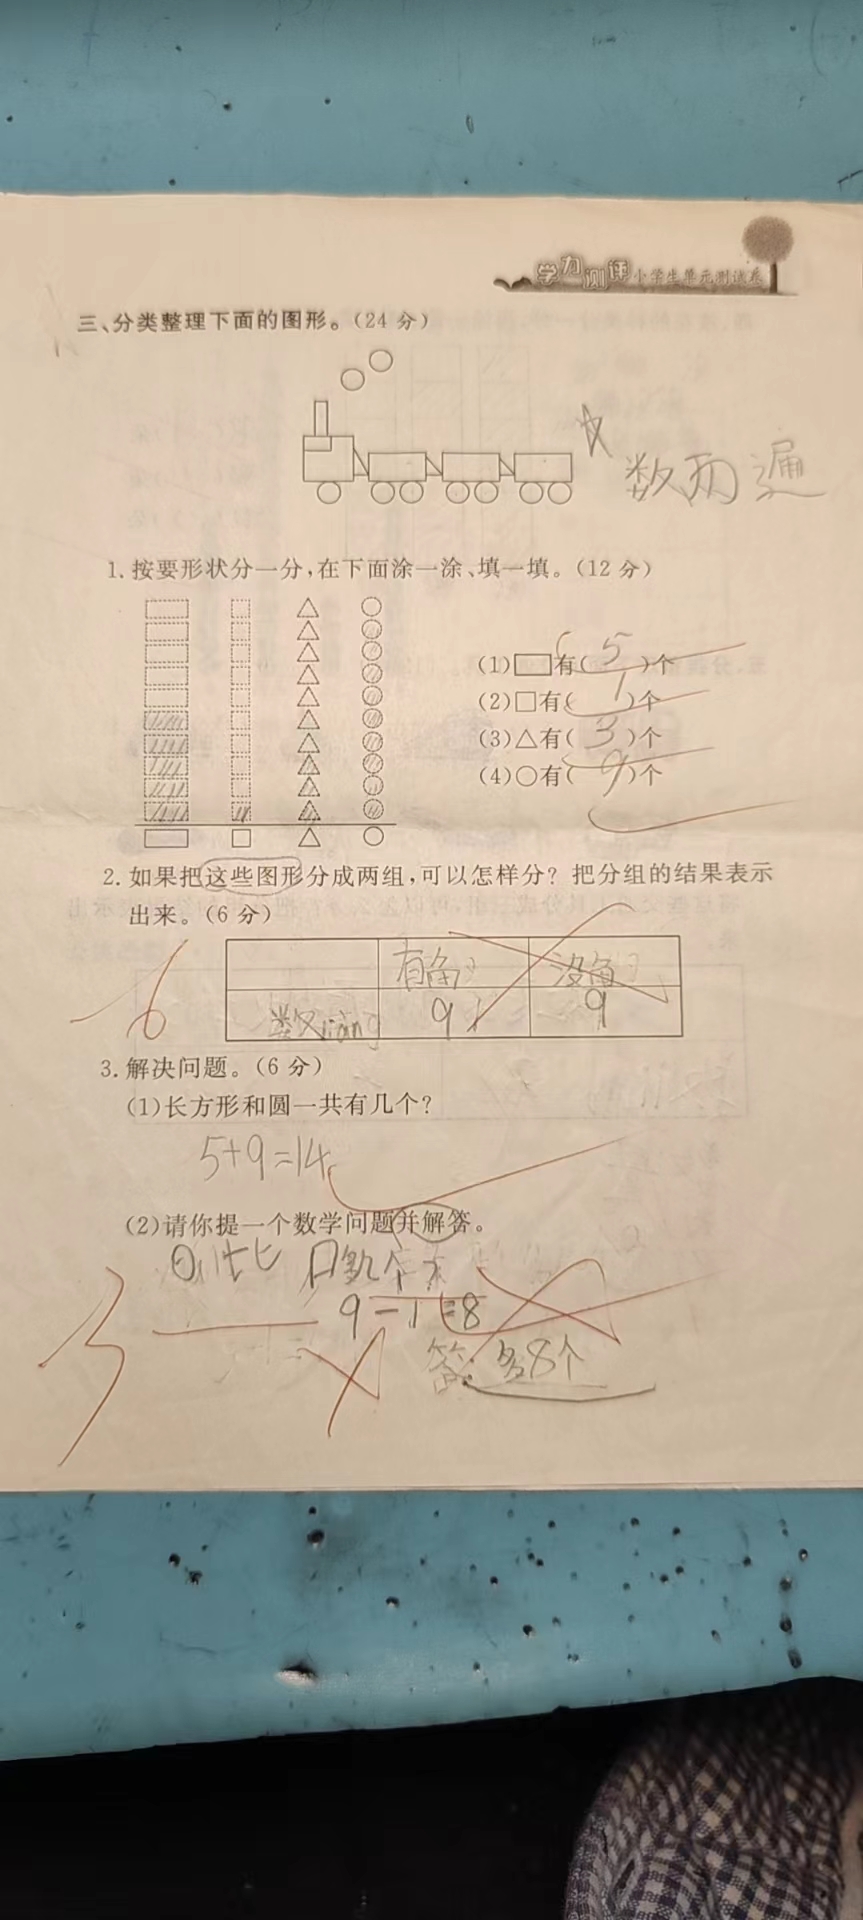 学力测评小学生单元测试卷
三、分类整理下面的图形。(24分)
☆数两遍
1.按要形状分一分,在下面涂一涂、填一填。(12分)
(1)▭有(5)个
(2)□有(1)个
(3)△有(3)个
(4)○有(9)个
2.如果把这些图形分成两组,可以怎样分?把分组的结果表示
出来。(6分)
有角 没角
数liàng 9 9
6
3.解决问题。(6分)
(1)长方形和圆一共有几个?
5+9=14
(2)请你提一个数学问题并解答。
○比 □多几个
9-1=8
3
答:多8个